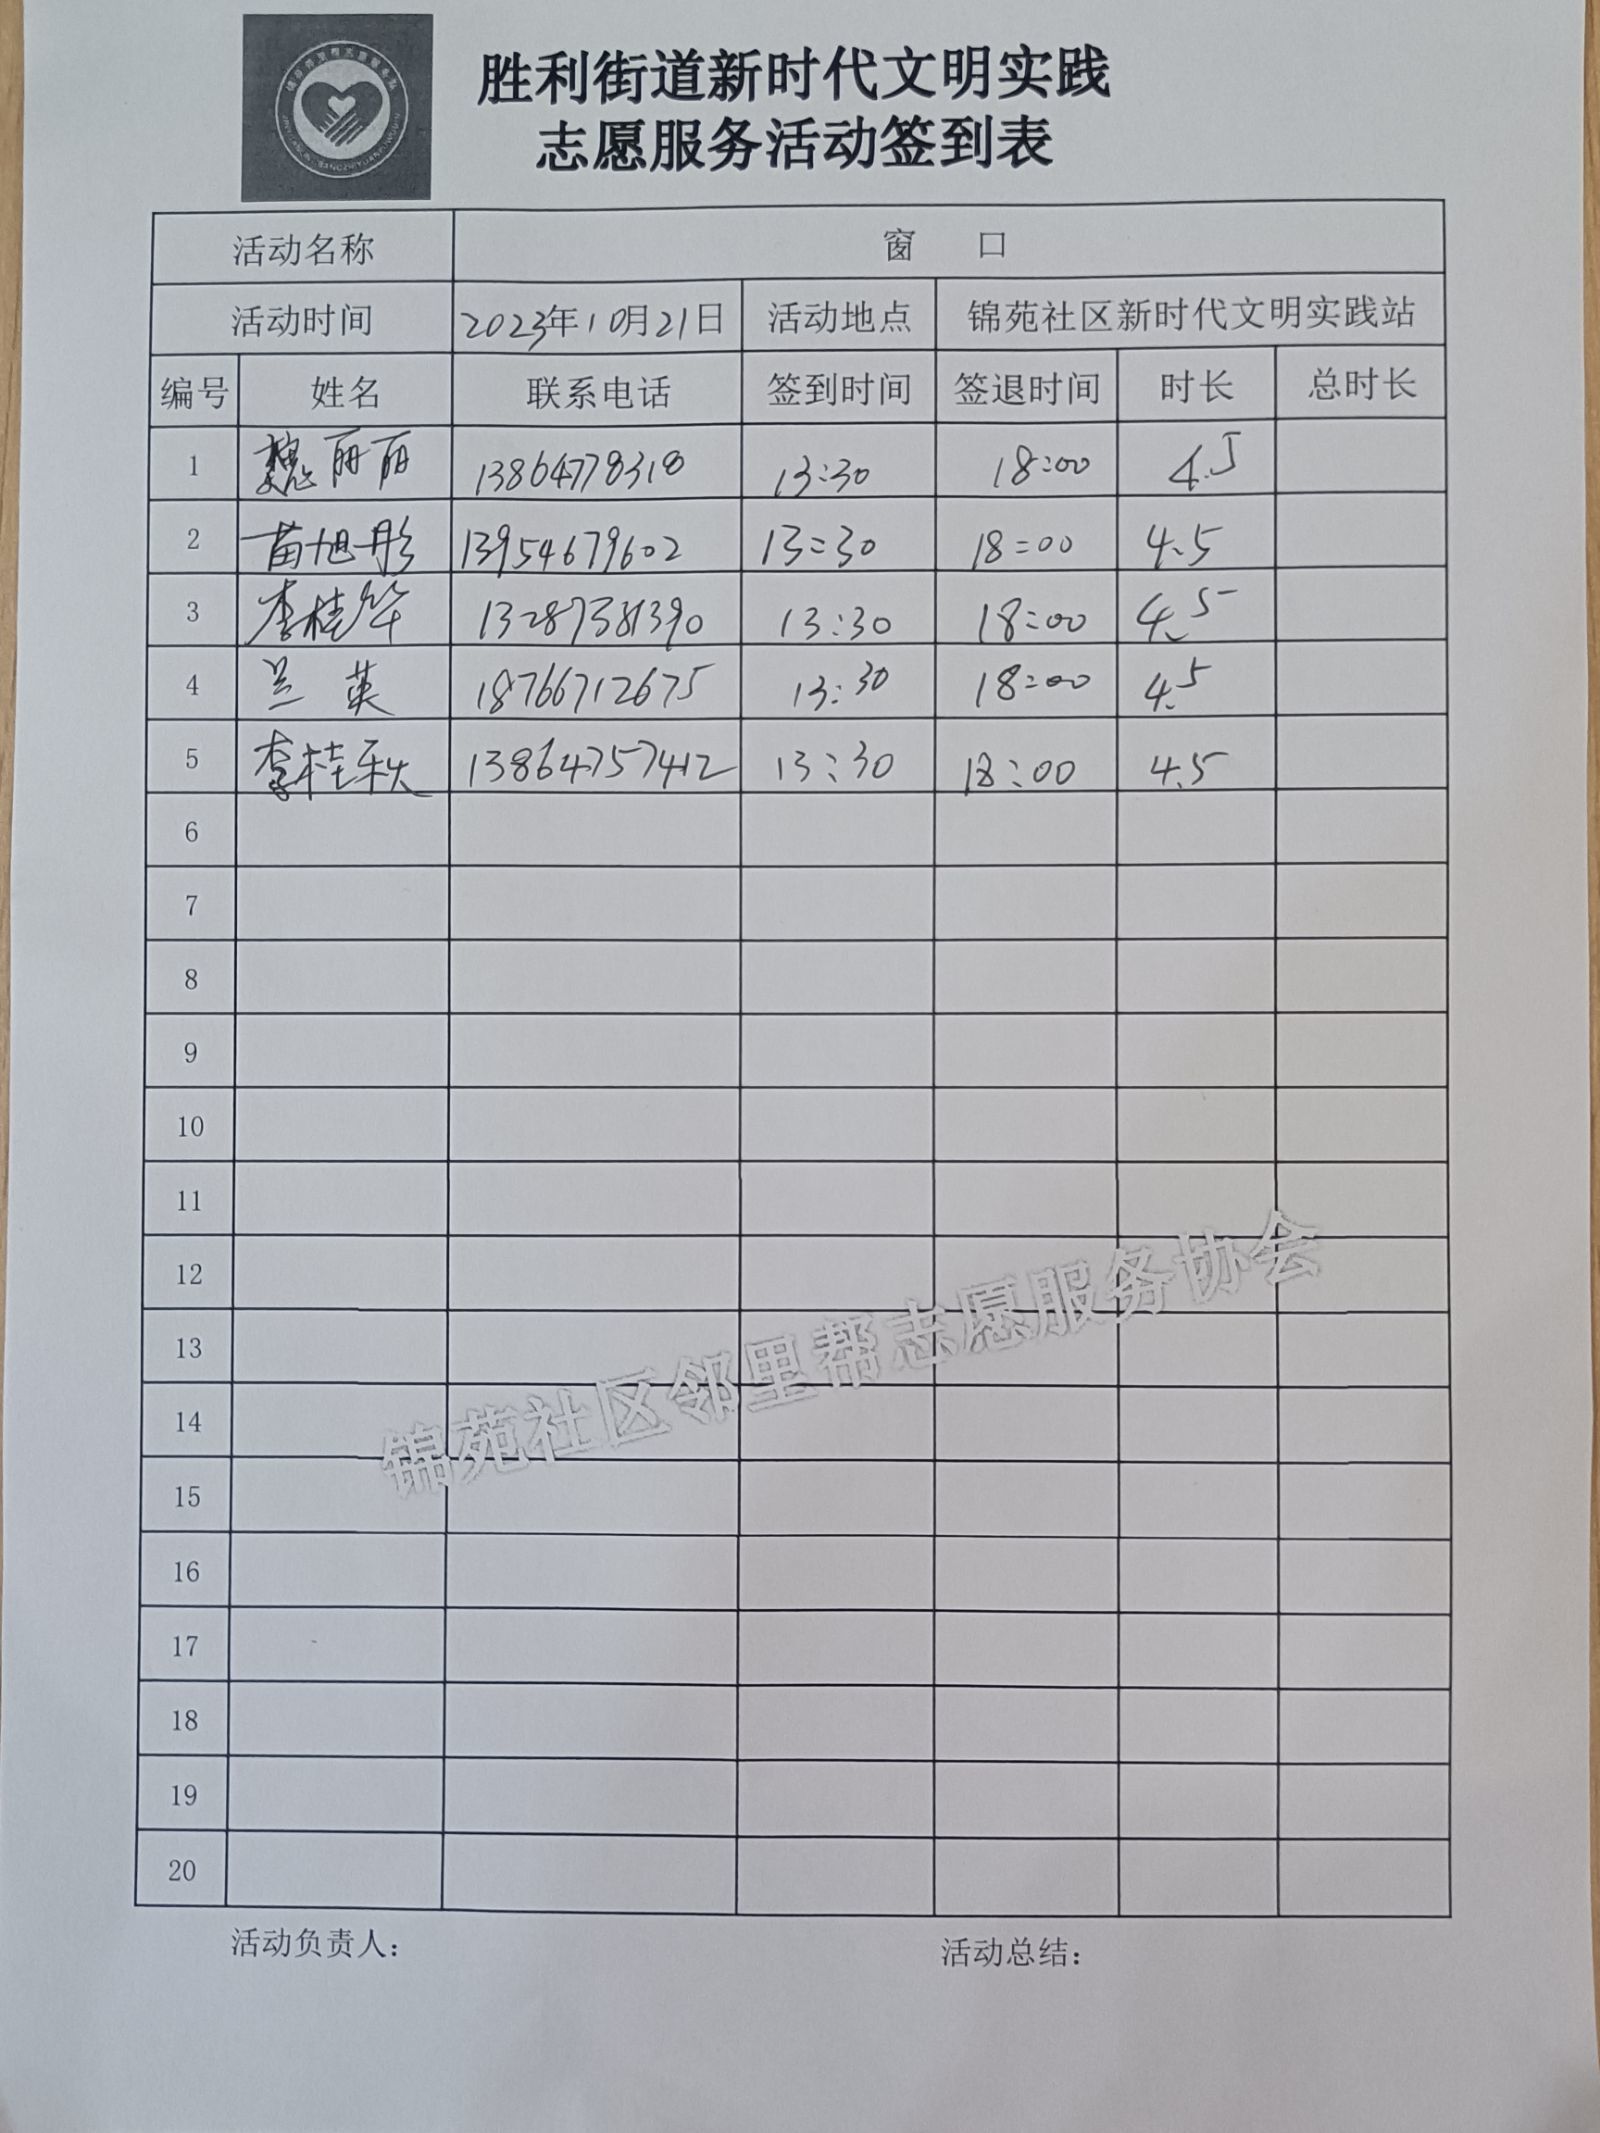 胜利街道新时代文明实践
志愿服务活动签到表
活动名称 窗 口
活动时间 2023年10月21日 活动地点 锦苑社区新时代文明实践站
编号 姓名 联系电话 签到时间 签退时间 时长 总时长
1 魏丽丽 13864778318 13:30 18:00 4.5
2 苗旭彤 13954679602 13:30 18:00 4.5
3 李桂华 13287381390 13:30 18:00 4.5
4 兰英 18766712675 13:30 18:00 4.5
5 李桂秋 13864757412 13:30 18:00 4.5
6
7
8
9
10
11
12
13
14
15
16
17
18
19
20
锦苑社区邻里帮志愿服务协会
活动负责人： 活动总结：